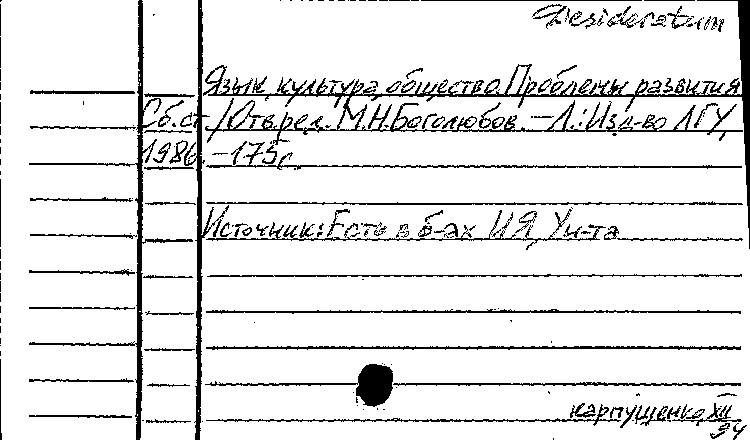 Desideratum
Язык, культура, общество. Проблемы развития
Сб. ст. / Отв. ред. М.Н. Боголюбов. – Л.: Изд-во ЛГУ,
1986. – 175 с.
Источник: Есть в б-ах ИЯ, Ун-та
Карпущенко, XII
94